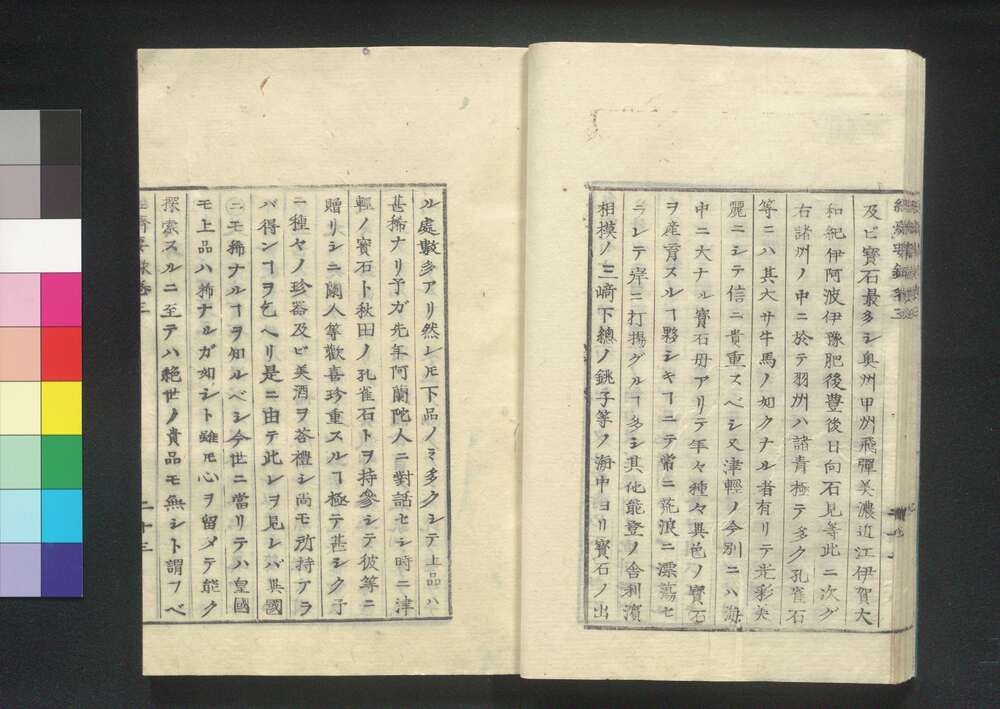 經濟要錄卷三
及ビ寳石最多シ奥州甲州飛彈美濃近江伊賀大
和紀伊阿波伊豫肥後豊後日向石見等此ニ次グ
右諸州ノ中ニ於テ羽州ハ諸青極テ多ク孔雀石
等ニハ其大サ牛馬ノ如クナル者有リテ光彩美
麗ニシテ信ニ貴重スベシ又津輕ノ今別ニハ海
中ニ大ナル寳石毋アリテ年々種々異色ノ寳石
ヲ產育スルヿ夥シキヿニテ常ニ荒浪ニ漂蕩セ
ラレテ岸ニ打揚グルヿ多シ其他能登ノ舎利濱
相模ノ三﨑下總ノ銚子等ノ海中ヨリ寳石ノ出
ル處數多アリ然レ𪜈下品ノミ多クシテ上品ハ
甚稀ナリ予ガ先年阿蘭陀人ニ對話セシ時ニ津
輕ノ寳石ト秋田ノ孔雀石トヲ持參シテ彼等ニ
贈リシニ蘭人等歡喜珍重スルヿ極テ甚シク予
ニ種々ノ珍器及ビ美酒ヲ答禮シ尚モ所持アラ
バ得ンヿヲ乞ヘリ是ニ由テ此レヲ見レバ異國
ニモ稀ナルヿヲ知ルベシ今世ニ當リテハ皇國
モ上品ハ稀ナルガ如シト雖𪜈心ヲ留メテ能ク
探索スルニ至テハ絶世ノ貴品モ無シト謂フベ
二十三